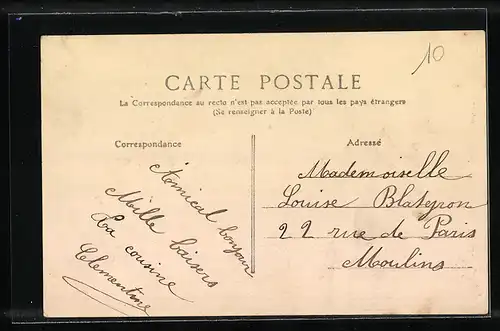 10
CARTE POSTALE
La Correspondance au recto n'est pas acceptée par tous les pays étrangers
(Se renseigner à la Poste)
Correspondance
Amical bonjour
Mille baisers
La cousine
Clementine
Adressé
Mademoiselle
Louise Blateyron
22 rue de Paris
Moulins